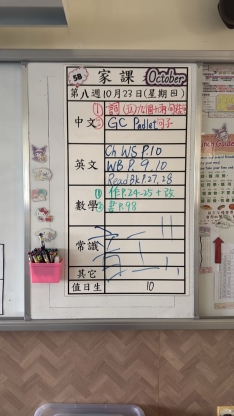 5B 家課 October
第八週10月23日(星期日)
中文
① 詞(五)12個+兩句造句
② GC Padlet句子
英文
Ch WS P.10
WB P.9,10
Read BK P.27,28
數學
① 作P.24-25+改
② 書P.98
常識
其它
值日生 10